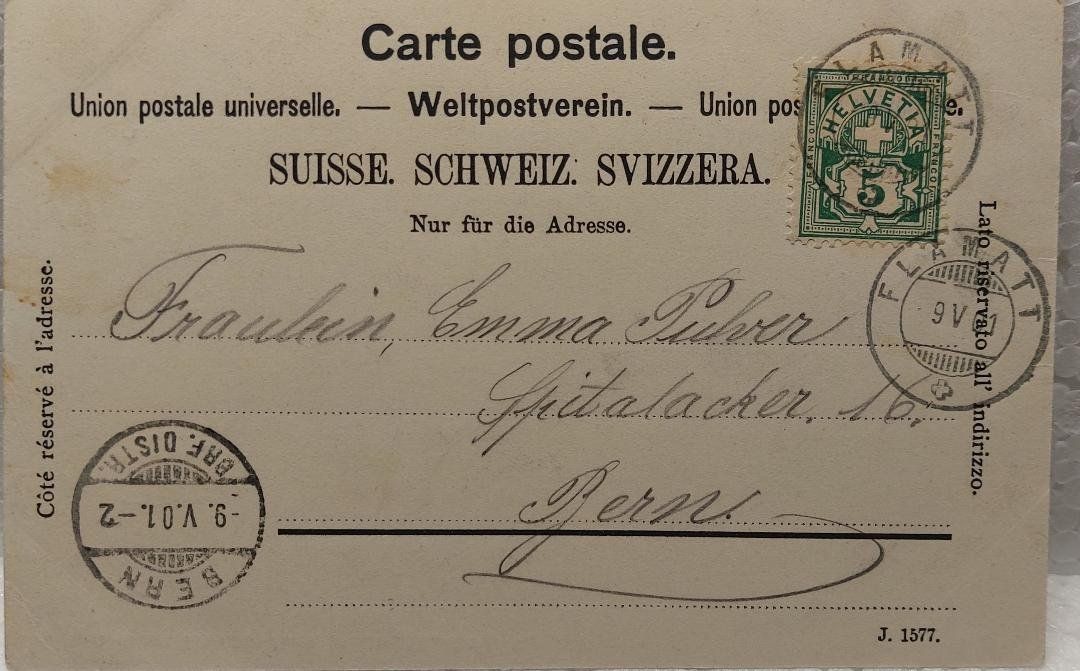 Carte postale.
Union postale universelle. — Weltpostverein. — Union pos e.
SUISSE. SCHWEIZ. SVIZZERA.
Nur für die Adresse.
FLAMATT
FRANCO
HELVETIA
FRANCO
FRANCO
5
FLAMATT
9 V 01
Lato riservato all' indirizzo.
Côté réservé à l'adresse.
Fraulein, Emma Pulver
Spitalacker, 16.
Bern.
BERN
-9. V. 01.-2
BRF. DISTR.
J. 1577.